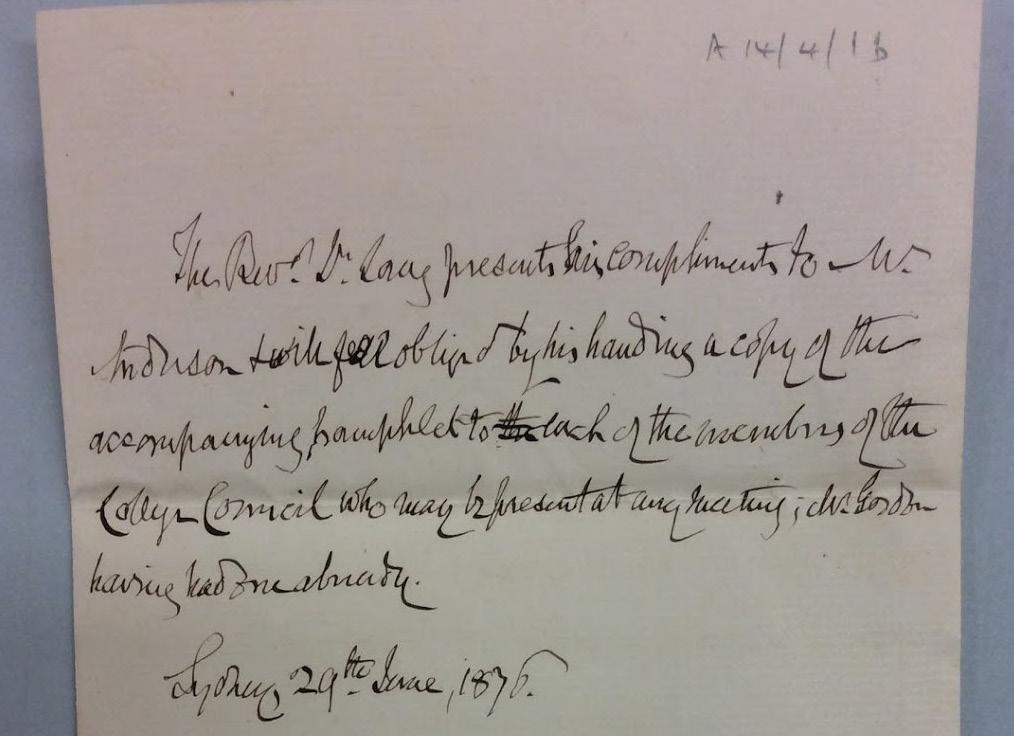 A 14/4/1 b
The Revd. Dr. Lang presents his compliments to Mr.
Anderson & will feel obliged by his handing a copy of the
accompanying pamphlet to the each of the members of the
College Council who may be present at any meeting; Mr. Gordon
having had one already.
Sydney, 29th June, 1876.